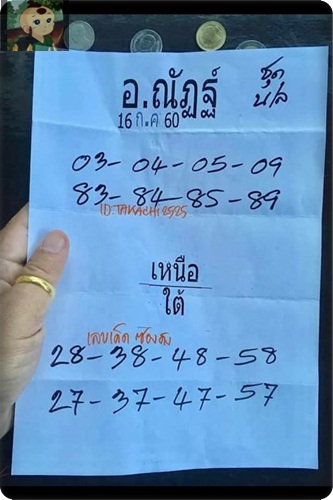 อ.ณัฏฐ์
ชุด
น/ล
16 ก.ค 60
03-04-05-09
83-84-85-89
ID.TAKACHI2525
เหนือ
ใต้
เลขเด็ด
28-38-48-58
27-37-47-57